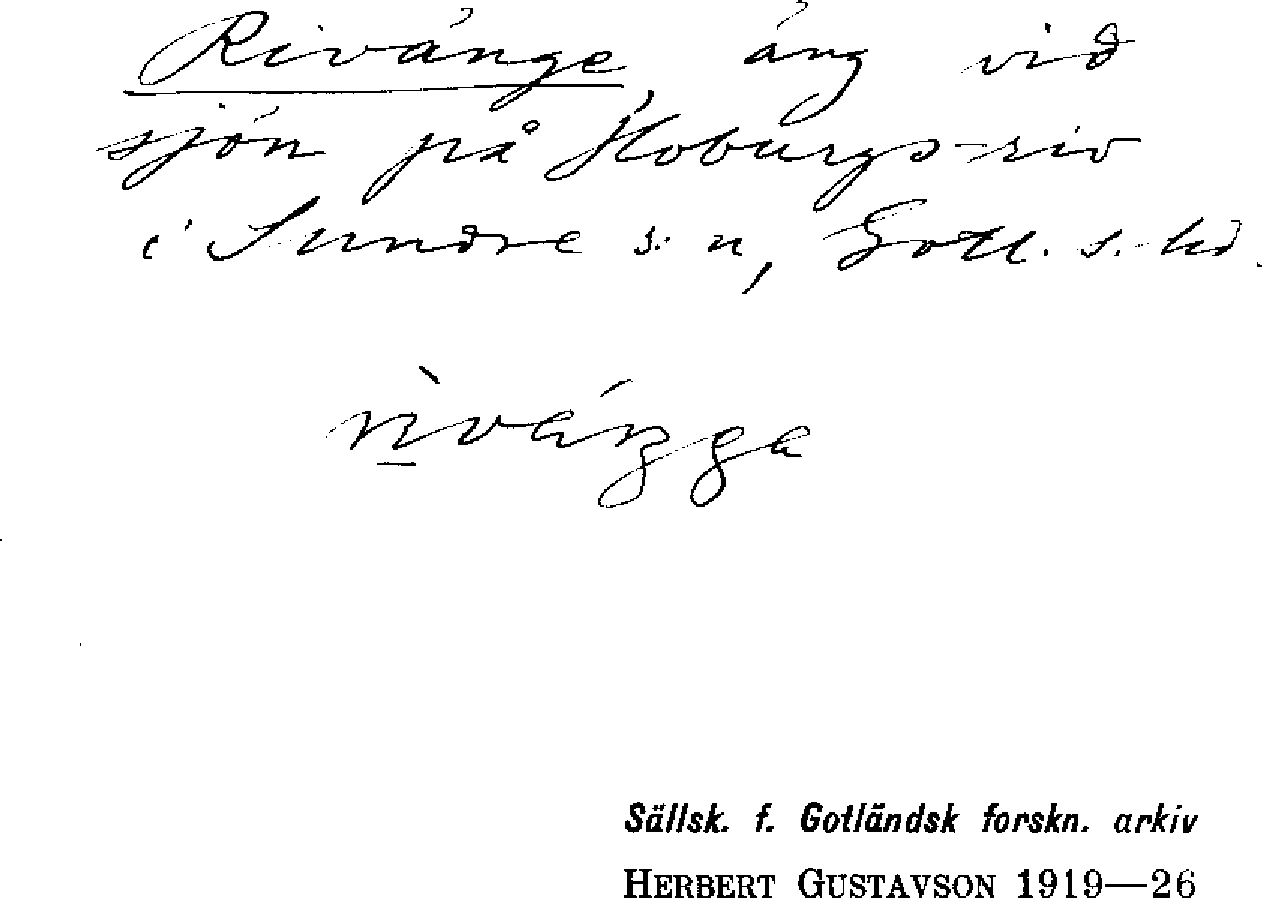 Rivänge, äng vid
sjön på Hoburgs-riv
i Sundre s:n, Gotl. s. hd.
Sällsk. f. Gotländsk forskn. arkiv
HERBERT GUSTAVSON 1919—26